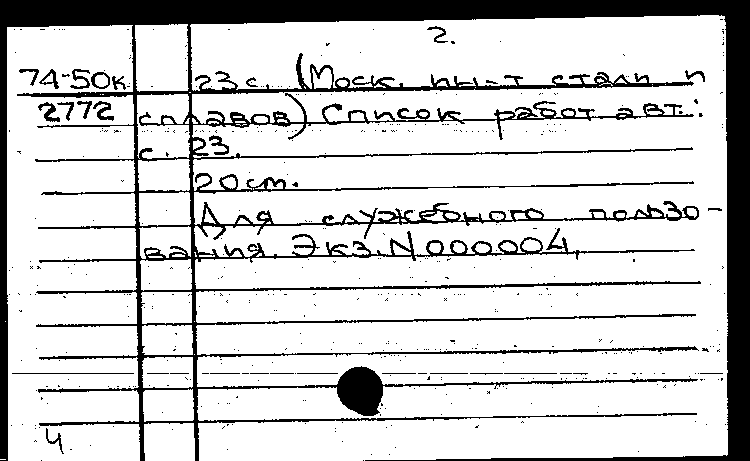 2.
74-50к 23 с. (Моск. ин-т стали и
2772 сплавов) Список работ авт.:
с. 23.
20 см.
Для служебного пользо-
вания. Экз. N 000004.
4